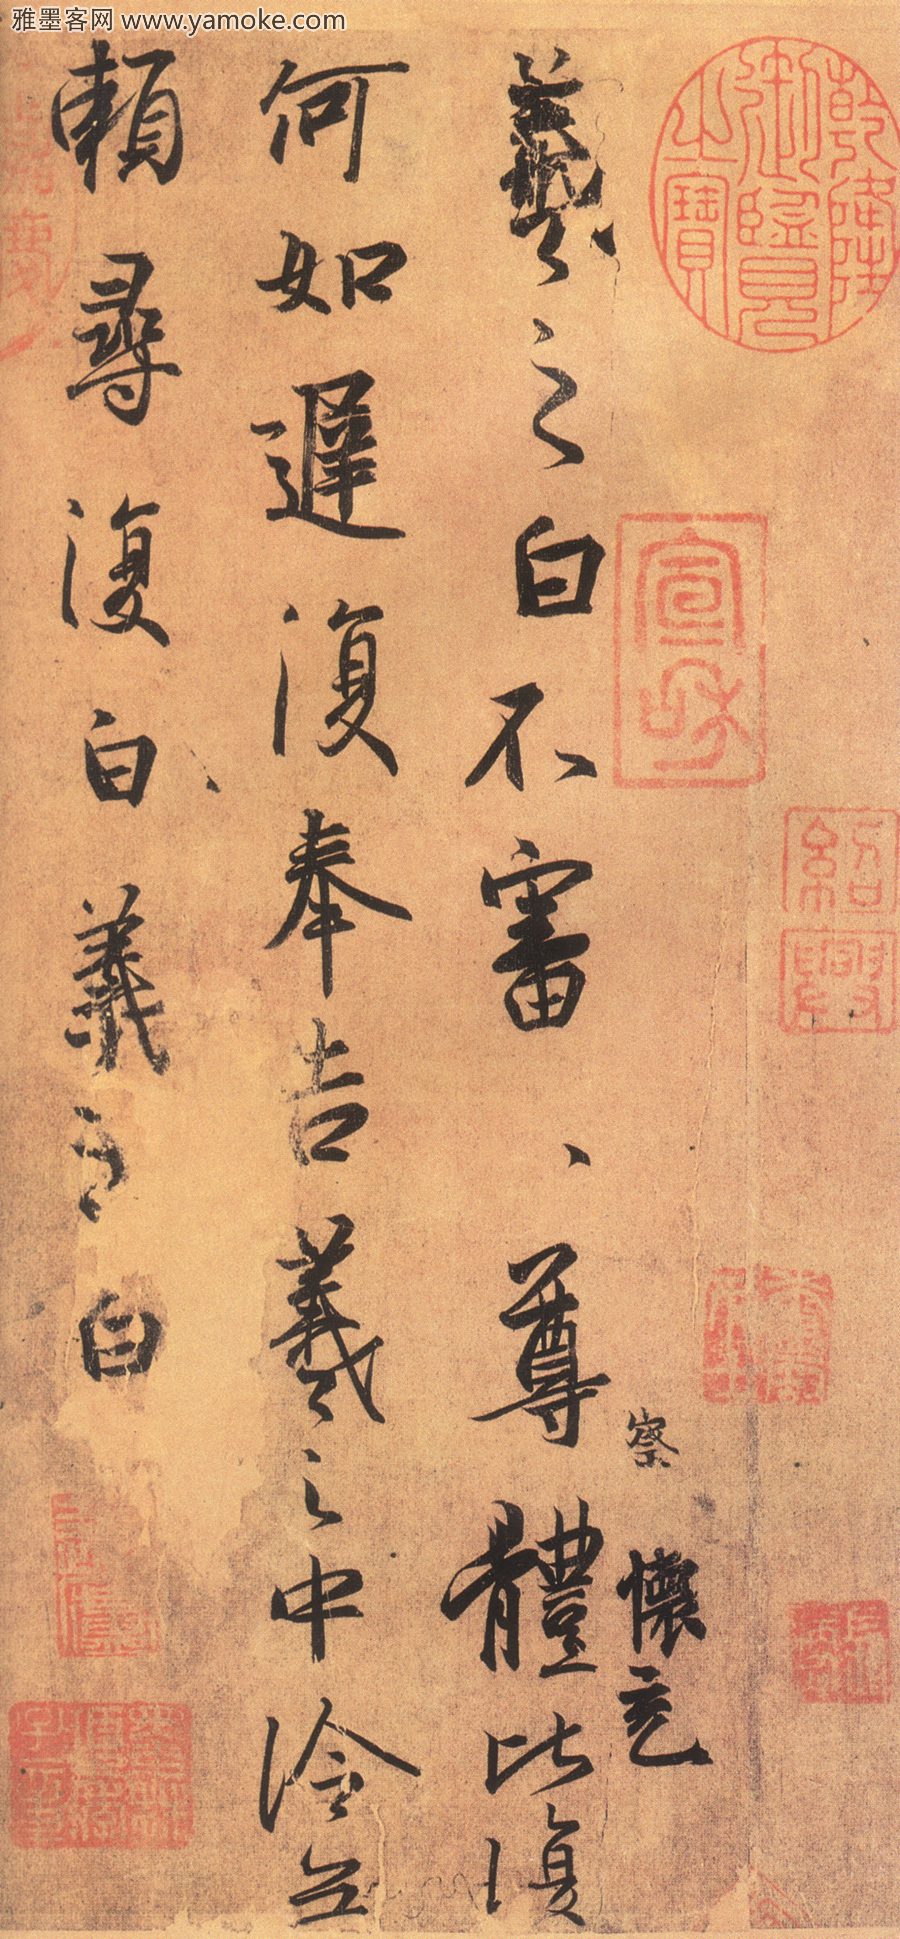 雅墨客网 www.yamoke.com
羲之白不審、尊體比復
何如遲復奉告羲之中冷无
賴尋復白羲之白
察
懷充
乾隆御覽之寶
宣和
紹興